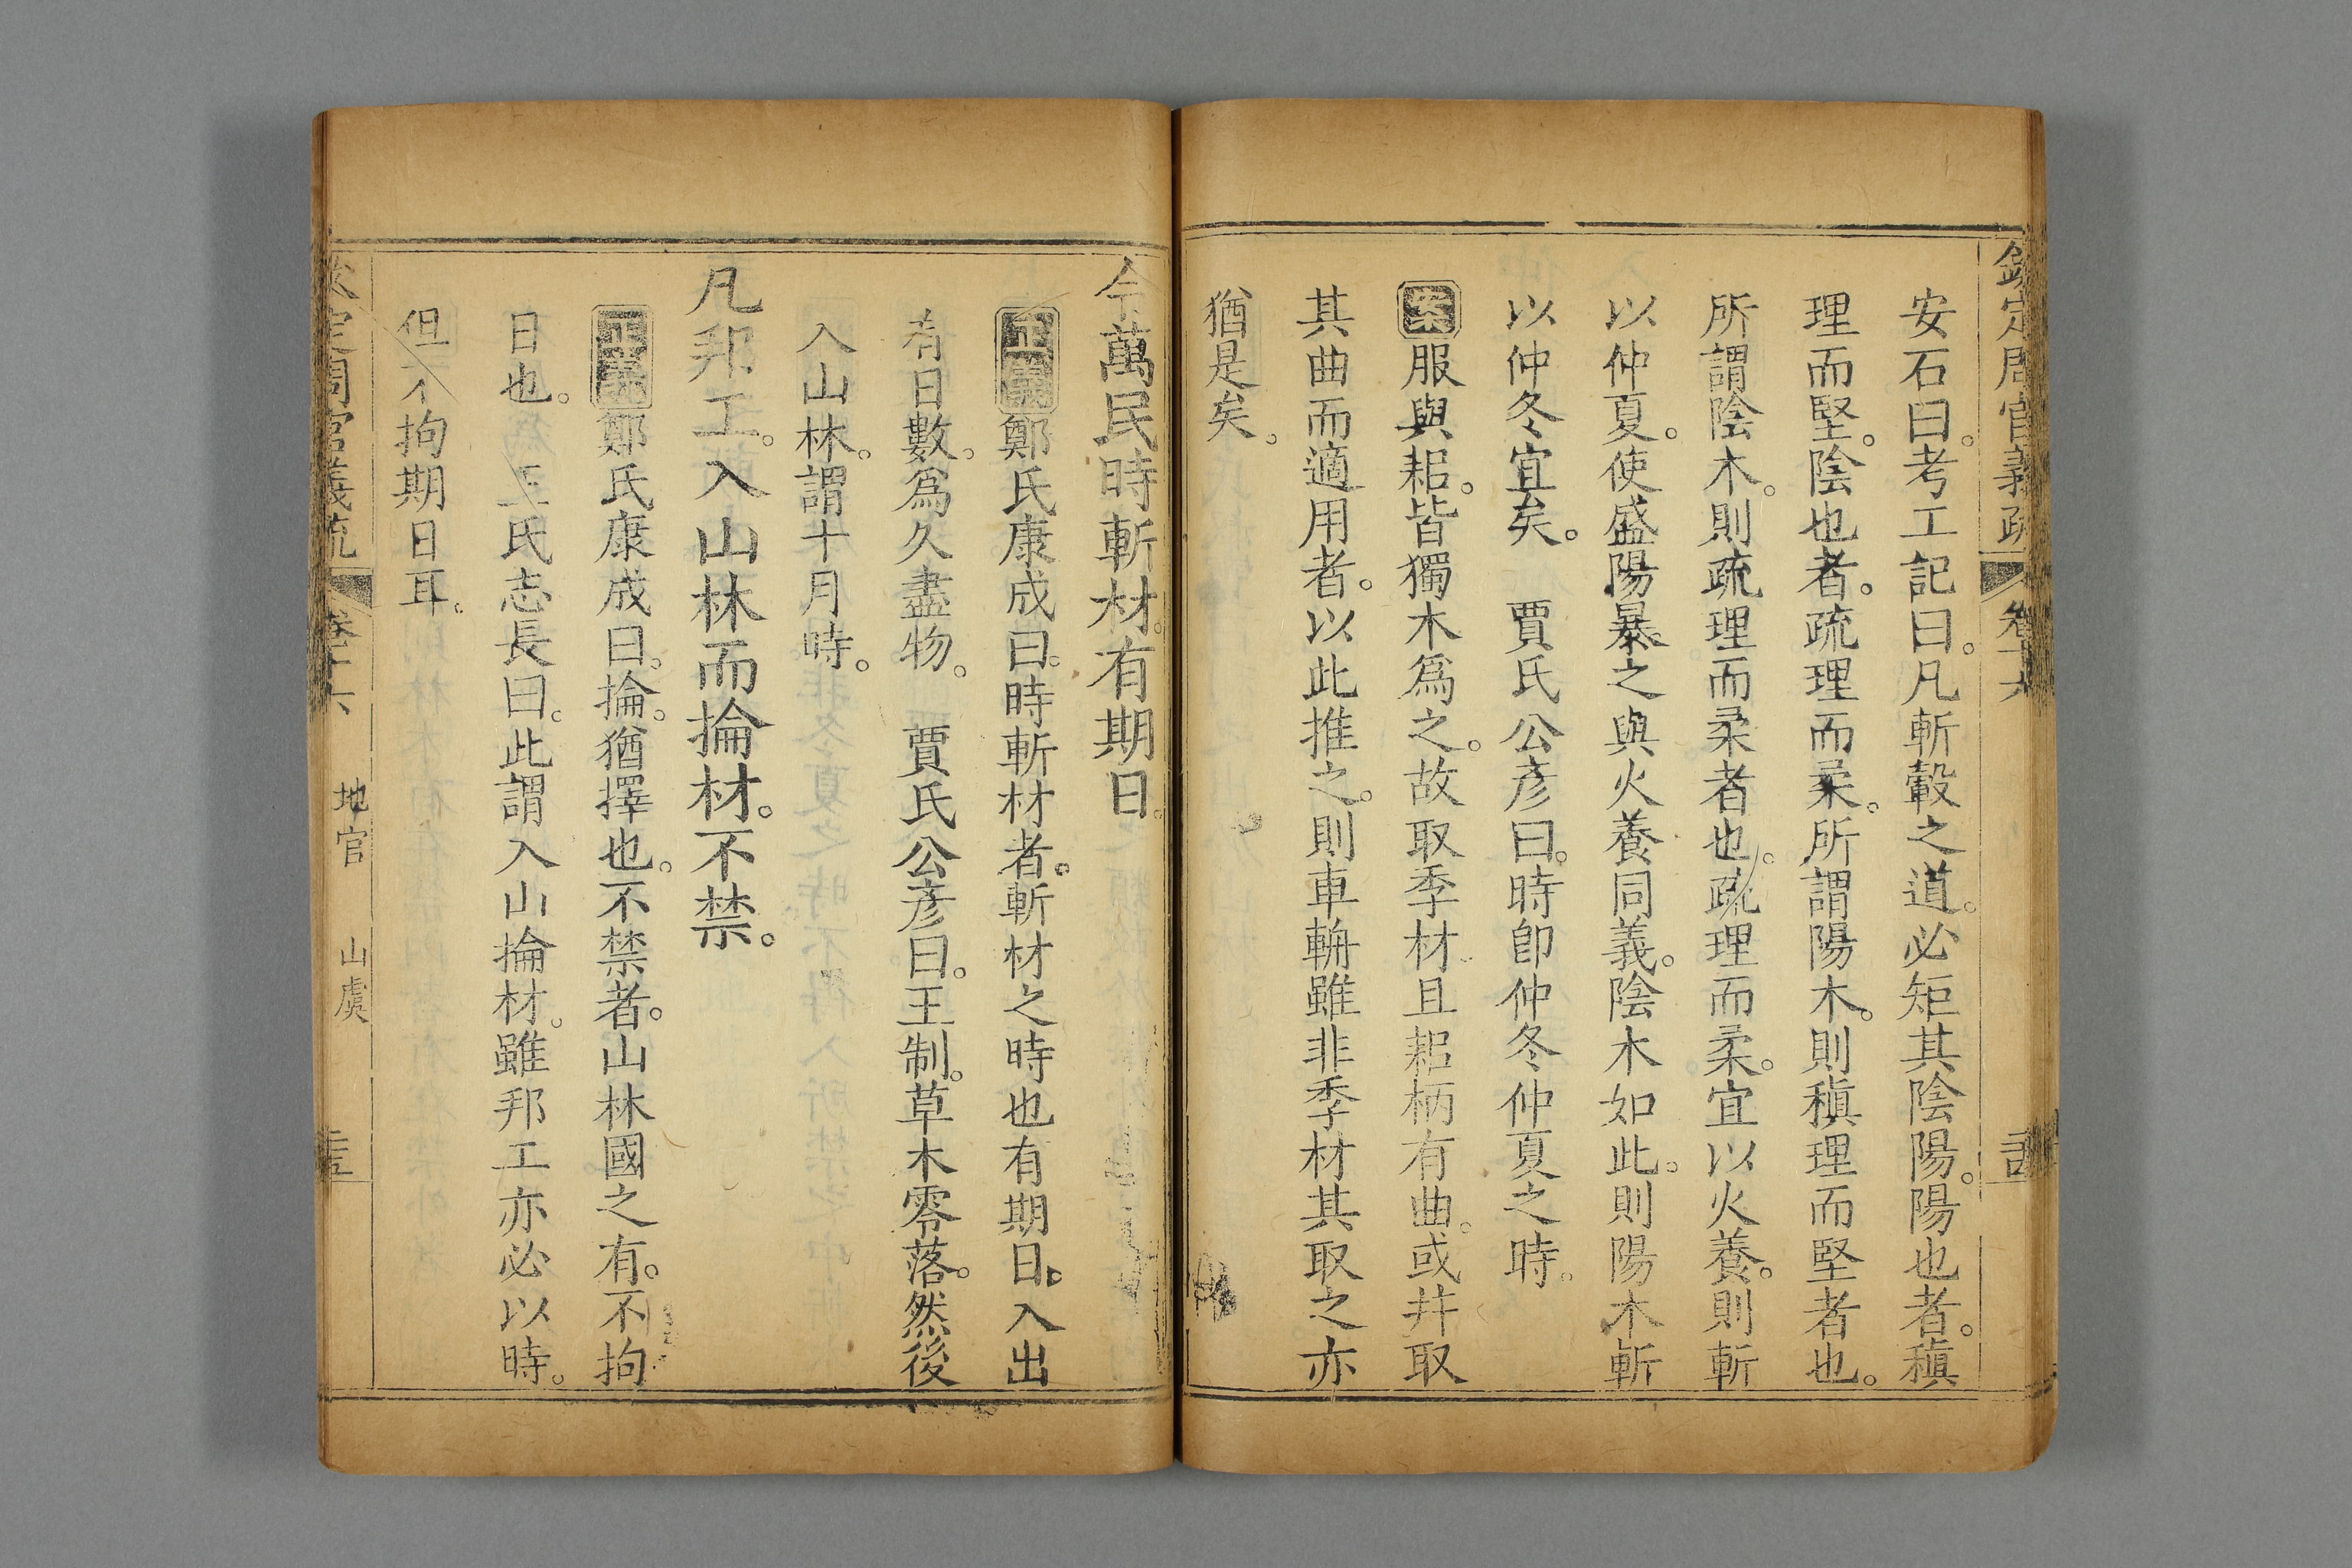 欽定周官義疏 卷十六
安石曰。考工記曰。凡斬轂之道。必矩其陰陽。陽也者。稹
理而堅。陰也者。疏理而柔。所謂陽木。則稹理而堅者也。
所謂陰木。則疏理而柔者也。疏理而柔。宜以火養。則斬
以仲夏。使盛陽暴之與火養同義。陰木如此。則陽木斬
以仲冬宜矣。 賈氏公彥曰。時卽仲冬仲夏之時。
案服與耜。皆獨木爲之。故取季材且耜柄有曲。或幷取
其曲而適用者。以此推之。則車輈雖非季材其取之亦
猶是矣。
令萬民時斬材。有期日。
正義鄭氏康成曰。時斬材者。斬材之時也有期日。入出
有日數。爲久盡物。 賈氏公彥曰。王制。草木零落。然後
入山林。謂十月時。
凡邦工。入山林而掄材。不禁。
正義鄭氏康成曰。掄。猶擇也。不禁者。山林國之有。不拘
日也。 王氏志長曰。此謂入山掄材。雖邦工亦必以時。
但不拘期日耳。
欽定周官義疏 卷十六 地官 山虞